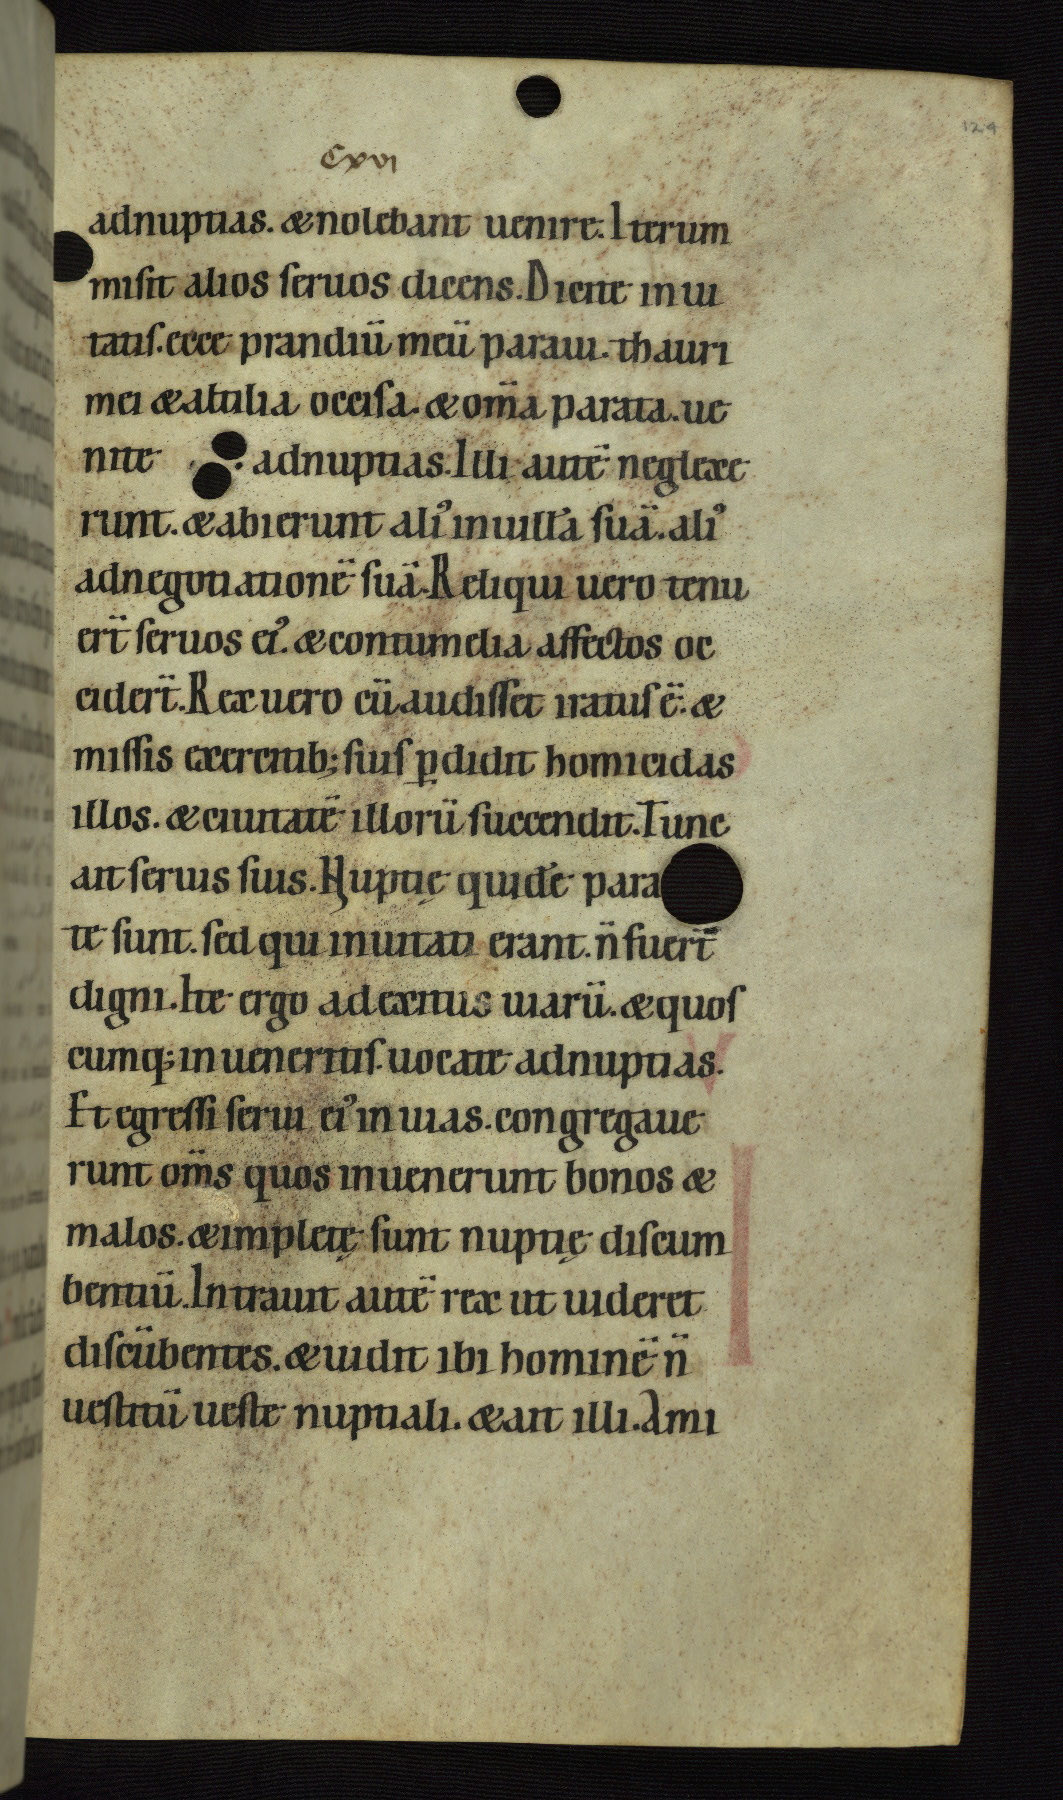 124
Cxvi
adnuptias. & nolebant uenire. Iterum
misit alios seruos dicens. Dicite inui
tatis. ecce prandiū meū paraui. thauri
mei & altilia occisa. & om̄a parata. ue
nite ad nuptias. Illi autē neglexe
runt. & abierunt ali᾽ in uillā suā. ali᾽
ad negotiationē suā. Reliqui uero tenu
er̄t seruos ei᾽. & contumelia affectos oc
cider̄t. Rex uero cū audisset iratus ē. &
missis exercitib; suis p̱didit homicidas
illos. & ciuitatē illorū succendit. Tunc
ait seruis suis. Nuptię quidē para
te sunt. sed qui inuitati erant. n̄ fuer̄t
digni. Ite ergo ad exitus uiarū. & quos
cumq; inueneritis uocate ad nuptias.
Et egressi serui ei᾽ in uias. congregaue
runt om̄s quos inuenerunt bonos &
malos. & impletę sunt nuptię discum
bentiū. Intrauit autē rex ut uideret
discūbentes. & uidit ibi hominē n̄
uestitū ueste nuptiali. & ait illi. Ami